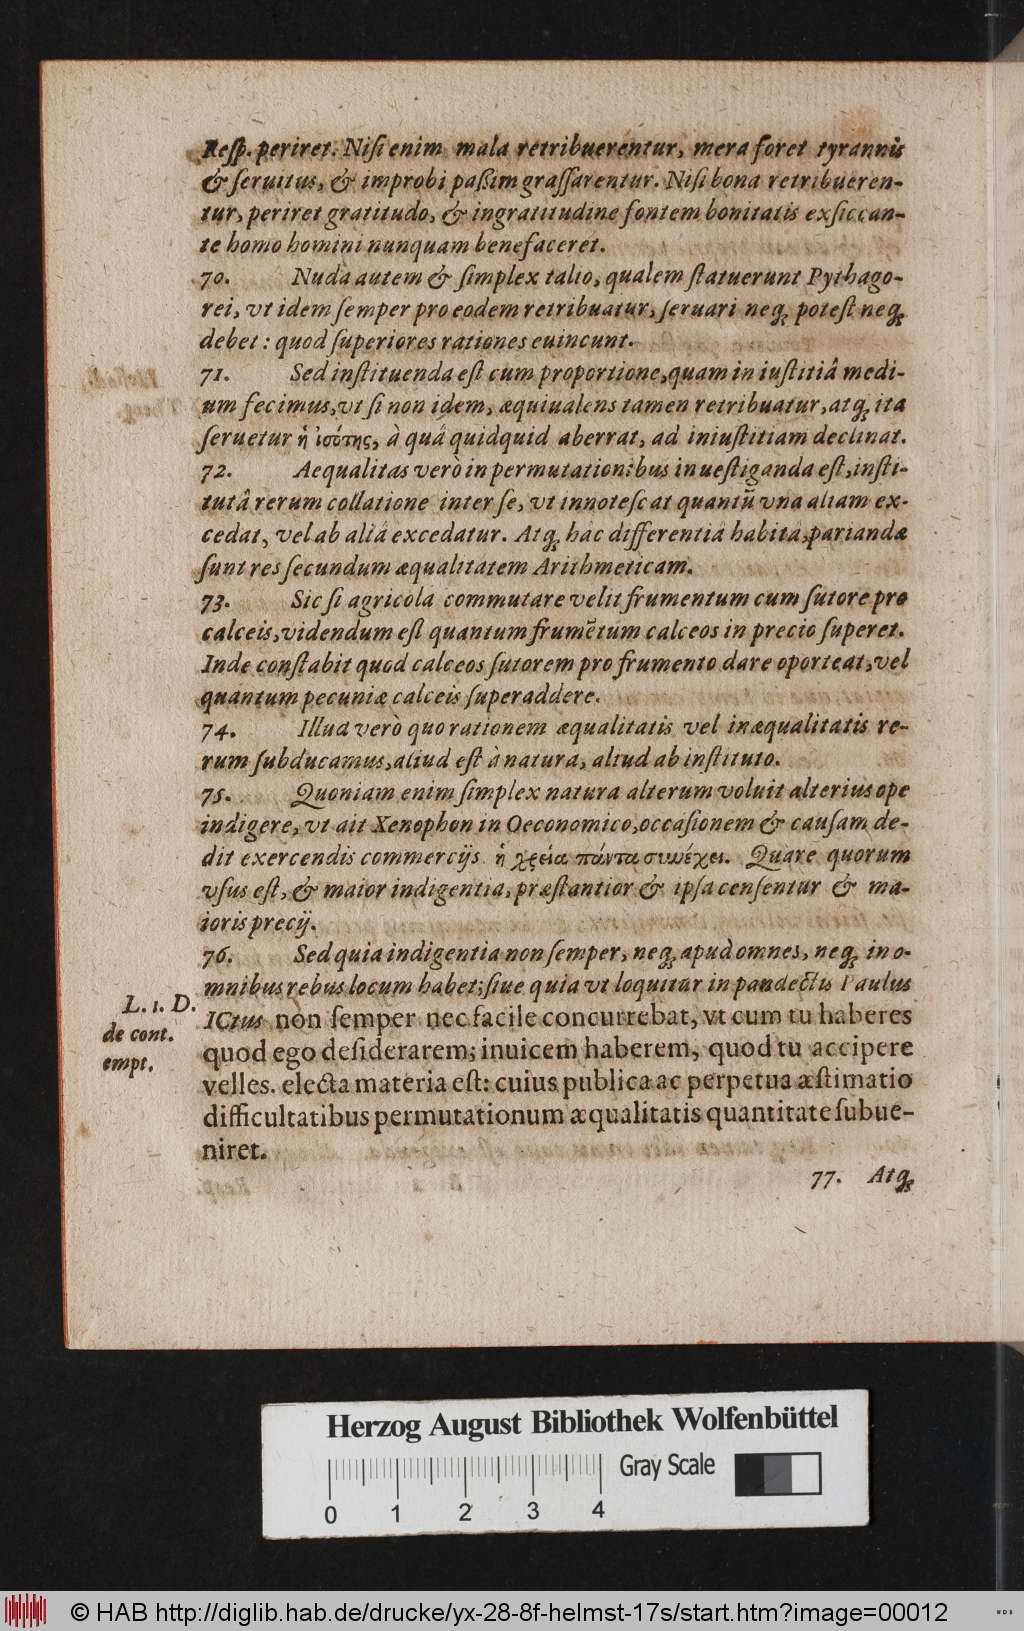 Reſp. periret. Niſi enim mala retribuerentur, mera foret tyrannis
& ſeruitus, & improbi paßim graſſarentur. Niſi bona retribueren-
tur, periret gratitudo, & ingratitudine fontem bonitatis exſiccan-
te homo homini nunquam benefaceret.
70. Nuda autem & ſimplex talio, qualem ſtatuerunt Pythago-
rei, vt idem ſemper pro eodem retribuatur, ſeruari neq; poteſt neq;
debet: quod ſuperiores rationes euincunt.
71. Sed inſtituenda eſt cum proportione, quam in iuſtitiâ medi-
um fecimus, vt ſi non idem, æquiualens tamen retribuatur, atq; ita
ſeruetur ἡ ἰσότης, à quâ quidquid aberrat, ad iniuſtitiam declinat.
72. Aequalitas verò in permutationibus inueſtiganda eſt, inſti-
tutâ rerum collatione inter ſe, vt innoteſcat quantũ vna aliam ex-
cedat, vel ab aliâ excedatur. Atq; hâc differentiâ habitâ, pariandæ
ſunt res ſecundum æqualitatem Arithmeticam.
73. Sic ſi agricola commutare velit frumentum cum ſutore pro
calceis, videndum eſt quantum frumẽtum calceos in precio ſuperet.
Inde conſtabit quod calceos ſutorem pro frumento dare oporteat, vel
quantum pecuniæ calceis ſuperaddere.
74. Illud verò quo rationem æqualitatis vel inæqualitatis re-
rum ſubducamus, aliud eſt à natura, aliud ab inſtituto.
75. Quoniam enim ſimplex natura alterum voluit alterius ope
indigere, vt ait Xenophon in Oeconomico, occaſionem & cauſam de-
dit exercendis commercijs ἡ χρεία πάντα συνέχει. Quare quorum
vſus eſt, & maior indigentia, præſtantior & ipſa cenſentur & ma-
ioris precij.
76. Sed quia indigentia non ſemper, neq; apud omnes, neq; in o-
mnibus rebus locum habet; ſiue quia vt loquitur in pandectis Paulus
L. 1. D.
de cont.
empt.
ICtus non ſemper nec facile concurrebat, vt cum tu haberes
quod ego deſiderarem; inuicem haberem, quod tu accipere
velles. electa materia eſt: cuius publica ac perpetua æſtimatio
difficultatibus permutationum æqualitatis quantitate ſubue-
niret.
77. Atq;
Herzog August Bibliothek Wolfenbüttel
Gray Scale
0 1 2 3 4
© HAB http://diglib.hab.de/drucke/yx-28-8f-helmst-17s/start.htm?image=00012